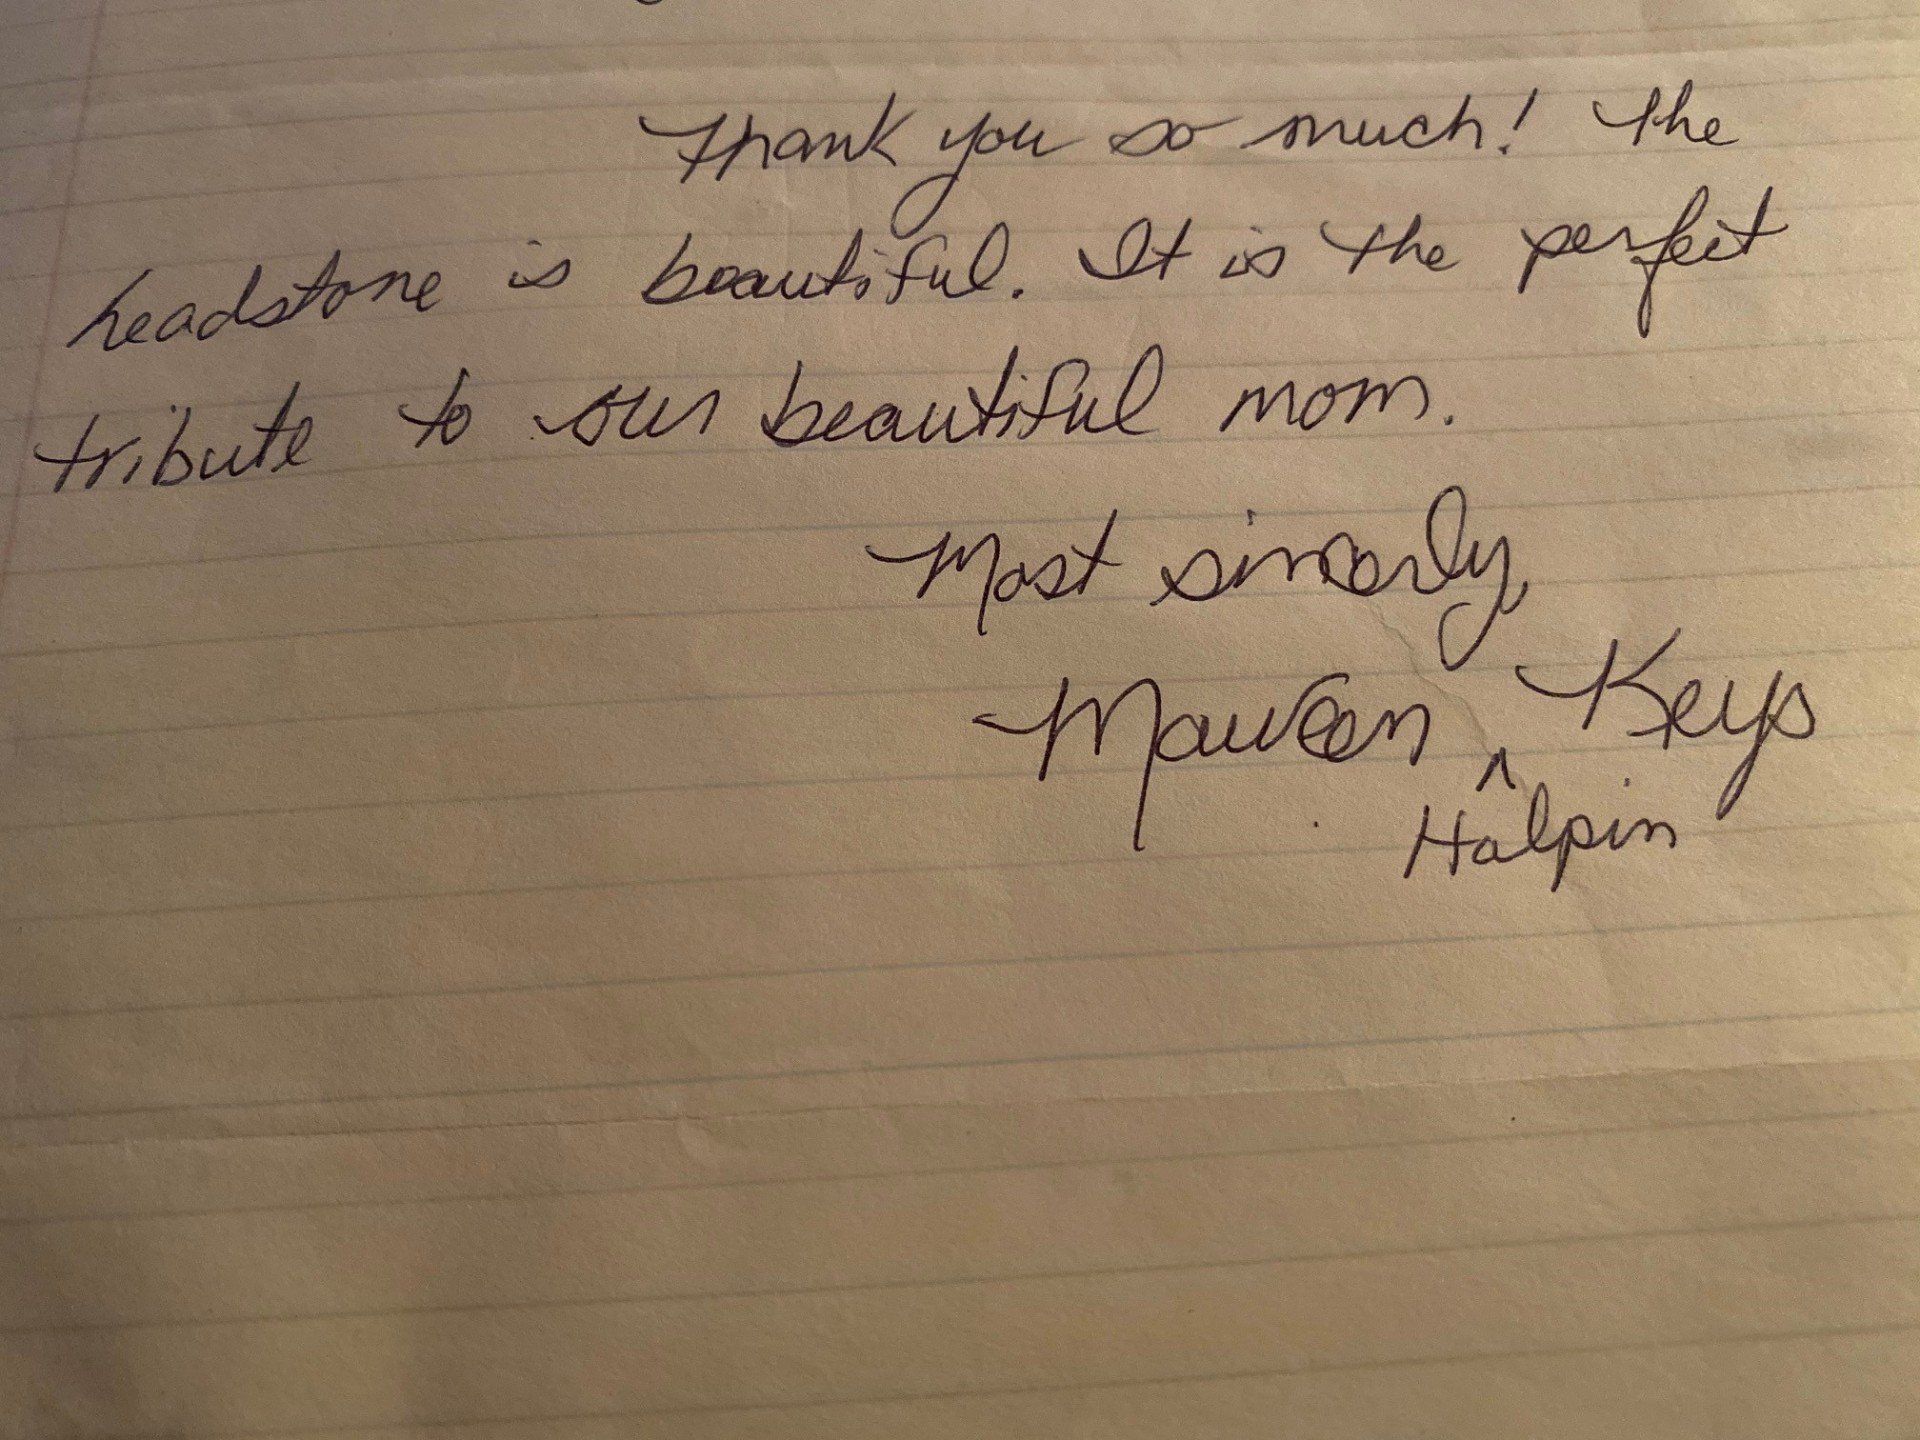 Thank you so much! The
headstone is beautiful. It is the perfect
tribute to our beautiful mom.
Most sincerly,
Maureen ^ Keys
Halpin